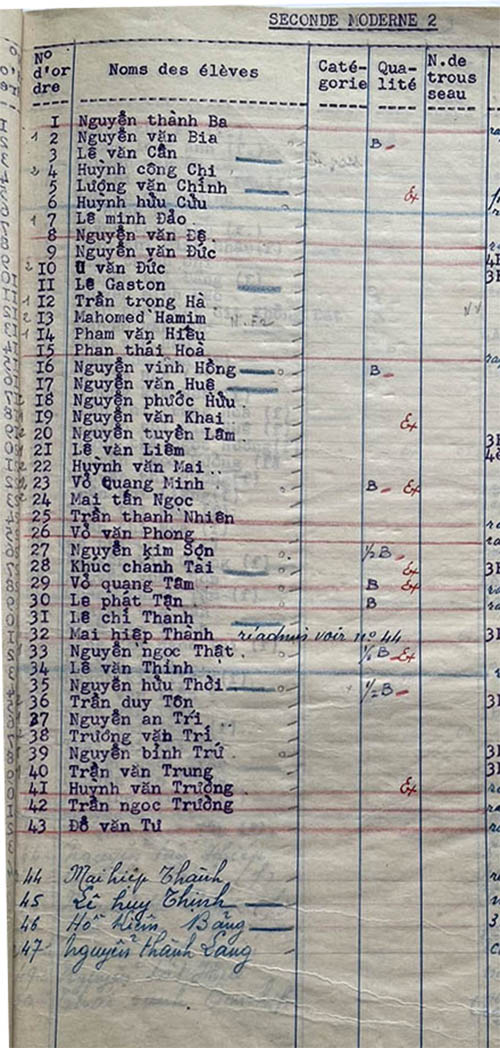 SECONDE MODERNE 2
No d'or dre Noms des élèves Caté- gorie Qua- lité N.de trous seau
I Nguyễn thành Ba
2 Nguyễn văn Bia B
3 Lê văn Cần
4 Huỳnh công Chi
5 Lương văn Chinh Ex
6 Huỳnh hữu Cửu
7 Lê minh Đảo
8 Nguyễn văn Đệ
9 Nguyễn văn Đức
IO U văn Đức
II Lê Gaston
I2 Trần trọng Hà
I3 Mahomed Hamim
I4 Phạm văn Hiếu
I5 Phan thái Hoà
I6 Nguyễn vinh Hồng B
I7 Nguyễn văn Huê
I8 Nguyễn phước Hữu
I9 Nguyễn văn Khai Ex
20 Nguyễn tuyền Lâm
2I Lê văn Liêm
22 Huỳnh văn Mai
23 Võ Quang Minh B Ex
24 Mai tấn Ngọc
25 Trần thanh Nhiên
26 Võ văn Phong
27 Nguyễn kim Sơn ½B
28 Khúc chánh Tài Ex
29 Võ quang Tâm B Ex
30 Lê phát Tân B
3I Lê chí Thanh
32 Mai hiệp Thành réadmis voir nº 44
33 Nguyễn ngọc Thật ½B Ex
34 Lê văn Thịnh
35 Nguyễn hữu Thời ½B
36 Trần duy Tôn
37 Nguyễn an Trí
38 Trương văn Trí
39 Nguyễn bỉnh Trứ
40 Trần văn Trung
4I Huỳnh văn Trường Ex
42 Trần ngọc Trưởng
43 Đỗ văn Tư
44 Mai hiệp Thành
45 Lê huy Thịnh
46 Hồ Kiêm Bằng
47 Nguyễn thành Lang